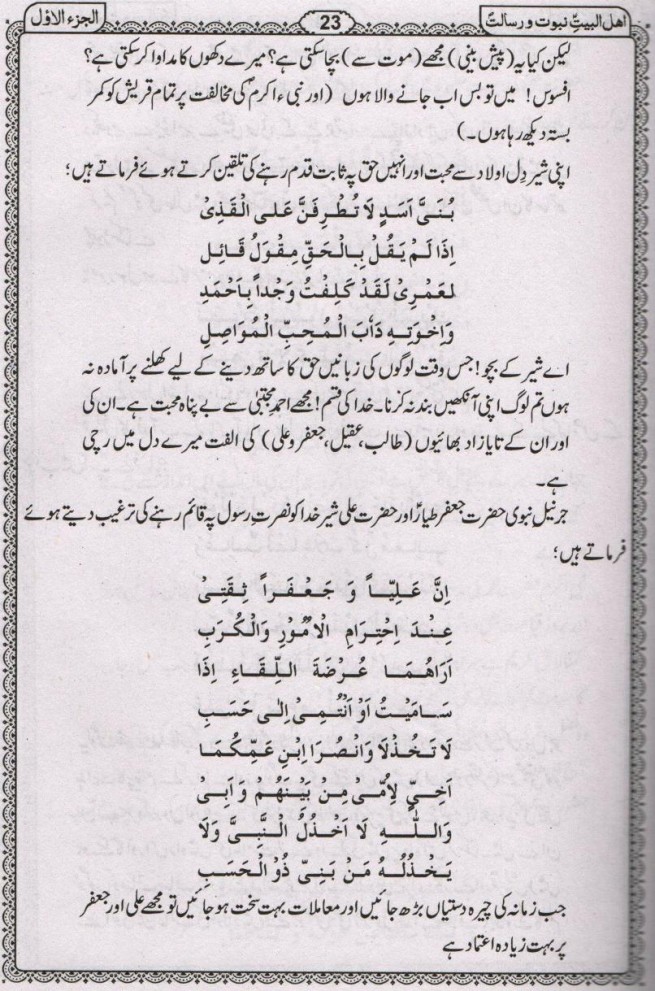 اهل البیتِ نبوت و رسالت 23 الجزء الاوّل
لیکن کیا یہ (پیش بینی) مجھے (موت سے) بچا سکتی ہے؟ میرے دکھوں کا مداوا کر سکتی ہے؟
افسوس! میں تو بس اب جانے والا ہوں (اور نبیء اکرم کی مخالفت پر تمام قریش کو کمر
بستہ دیکھ رہا ہوں۔)
اپنی شیر دِل اولاد سے محبت اور انہیں حق پہ ثابت قدم رہنے کی تلقین کرتے ہوئے فرماتے ہیں؛
بَنِیَّ اَسَدٍ لَا تُطْرِفَنَّ عَلَی الْقَذِیْ
اِذَا لَمْ یَقُلْ بِالْحَقِّ مِقْوَلُ قَائِلِ
لَعَمْرِیْ لَقَدْ کَلِفْتُ وَجْداً بِاَحْمَدِ
وَاِخْوَتِهٖ دَأبَ الْمُحِبِّ الْمُوَاصِلِ
اے شیر کے بچو! جس وقت لوگوں کی زبانیں حق کا ساتھ دینے کے لیے کھلنے پر آمادہ نہ
ہوں تم لوگ اپنی آنکھیں بند نہ کرنا۔ خدا کی قسم! مجھے احمد مجتبیٰ سے بے پناہ محبت ہے۔ ان کی
اور ان کے تایا زاد بھائیوں (طالب، عقیل، جعفر و علی) کی الفت میرے دل میں رچی
ہے۔
جرنیلِ نبوی حضرت جعفر طیارؑ اور حضرت علی شیر خدا کو نصرتِ رسول پہ قائم رہنے کی ترغیب دیتے ہوئے
فرماتے ہیں؛
اِنَّ عَلِیّاً وَ جَعْفَراً ثِقَتِیْ
عِنْدَ اِحْتِرَامِ الْاُمُوْرِ وَالْکُرَبِ
اَرَاهُمَا عُرْضَةَ اللِّقَاءِ اِذَا
سَامَیْتُ اَوْ اَنْتُمِیْ اِلٰی حَسَبِ
لَا تَخْذُلَا وَانْصُرَا ابْنِ عَمِّکُمَا
اَخِیْ لِاُمِّیْ مِنْ بَیْنَهُمْ وَ اَبِیْ
وَاللّٰهِ لَا اَخْذُلُ النَّبِیَّ وَلَا
یَخْذُلُهٗ مَنْ بَنِیْ ذُو الْحَسَبِ
جب زمانہ کی چیرہ دستیاں بڑھ جائیں اور معاملات بہت سخت ہو جائیں تو مجھے علی اور جعفر
پر بہت زیادہ اعتماد ہے